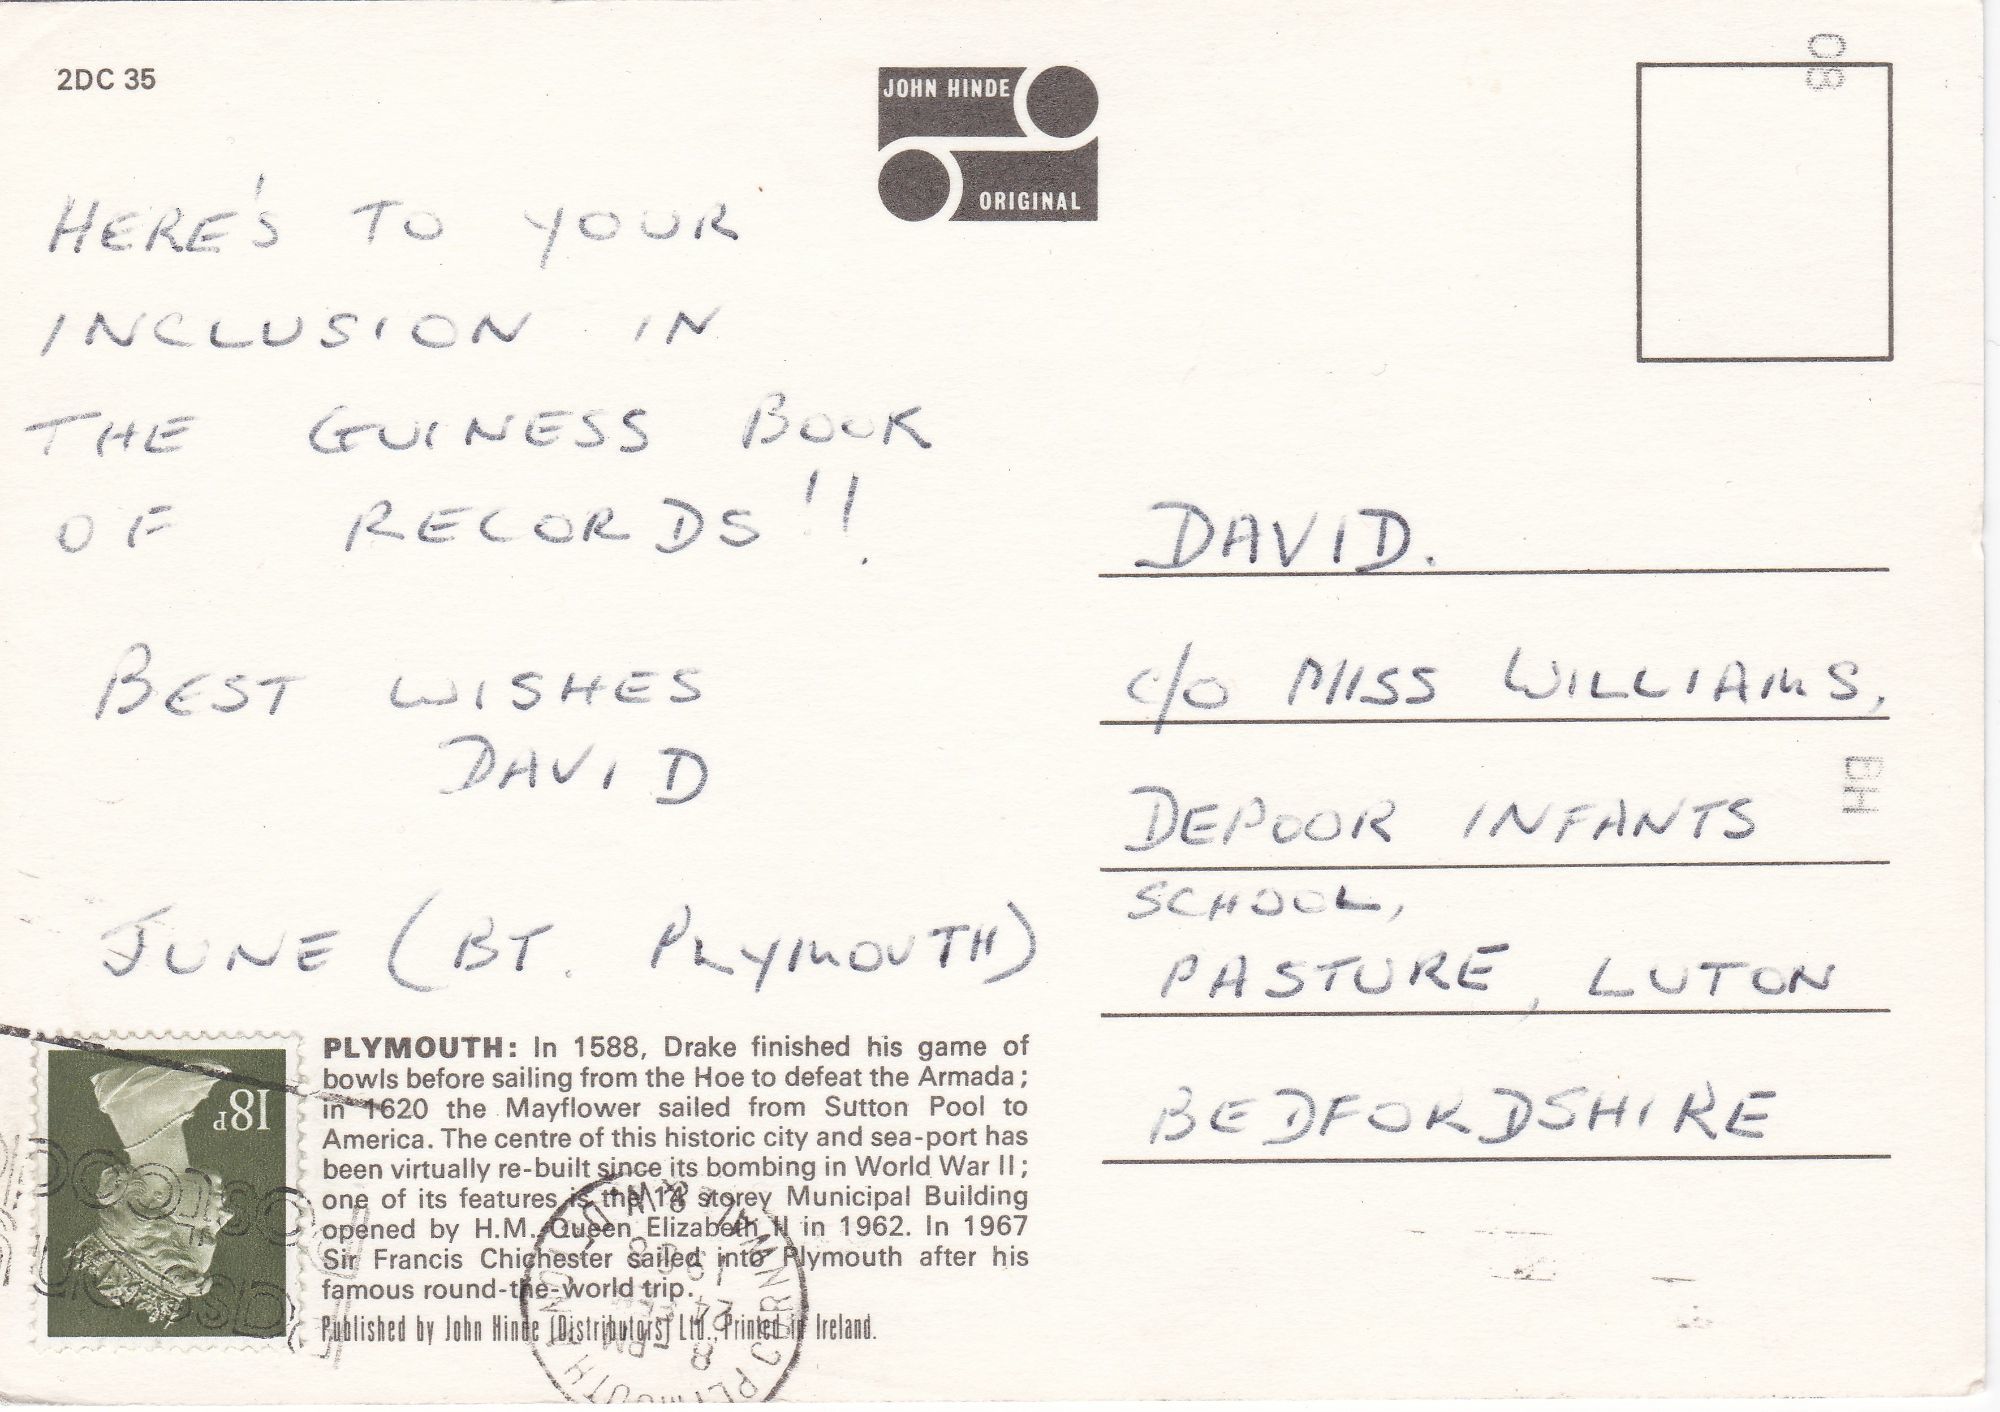 2DC 35
JOHN HINDE
ORIGINAL
HERE'S TO YOUR
INCLUSION IN
THE GUINESS BOOK
OF RECORDS!!
BEST WISHES
DAVID
JUNE (BT. PLYMOUTH)
DAVID.
C/O MISS WILLIAMS,
DEPOOR INFANTS
SCHOOL,
PASTURE, LUTON
BEDFORDSHIRE
18P
PLYMOUTH: In 1588, Drake finished his game of
bowls before sailing from the Hoe to defeat the Armada;
in 1620 the Mayflower sailed from Sutton Pool to
America. The centre of this historic city and sea-port has
been virtually re-built since its bombing in World War II;
one of its features is the 14 storey Municipal Building
opened by H.M. Queen Elizabeth II in 1962. In 1967
Sir Francis Chichester sailed into Plymouth after his
famous round-the-world trip.
Published by John Hinde (Distributors) Ltd., Printed in Ireland.